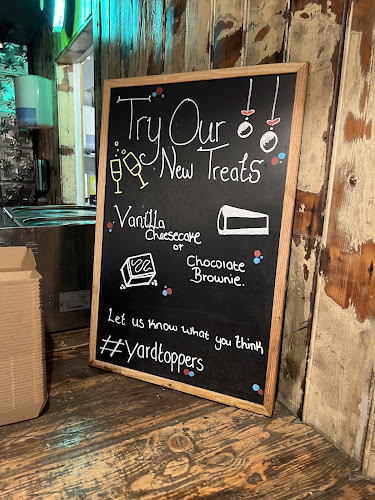 Try Our
New Treats
Vanilla
Cheesecake
or
Chocolate
Brownie.
Let us know what you think
#Yardtoppers